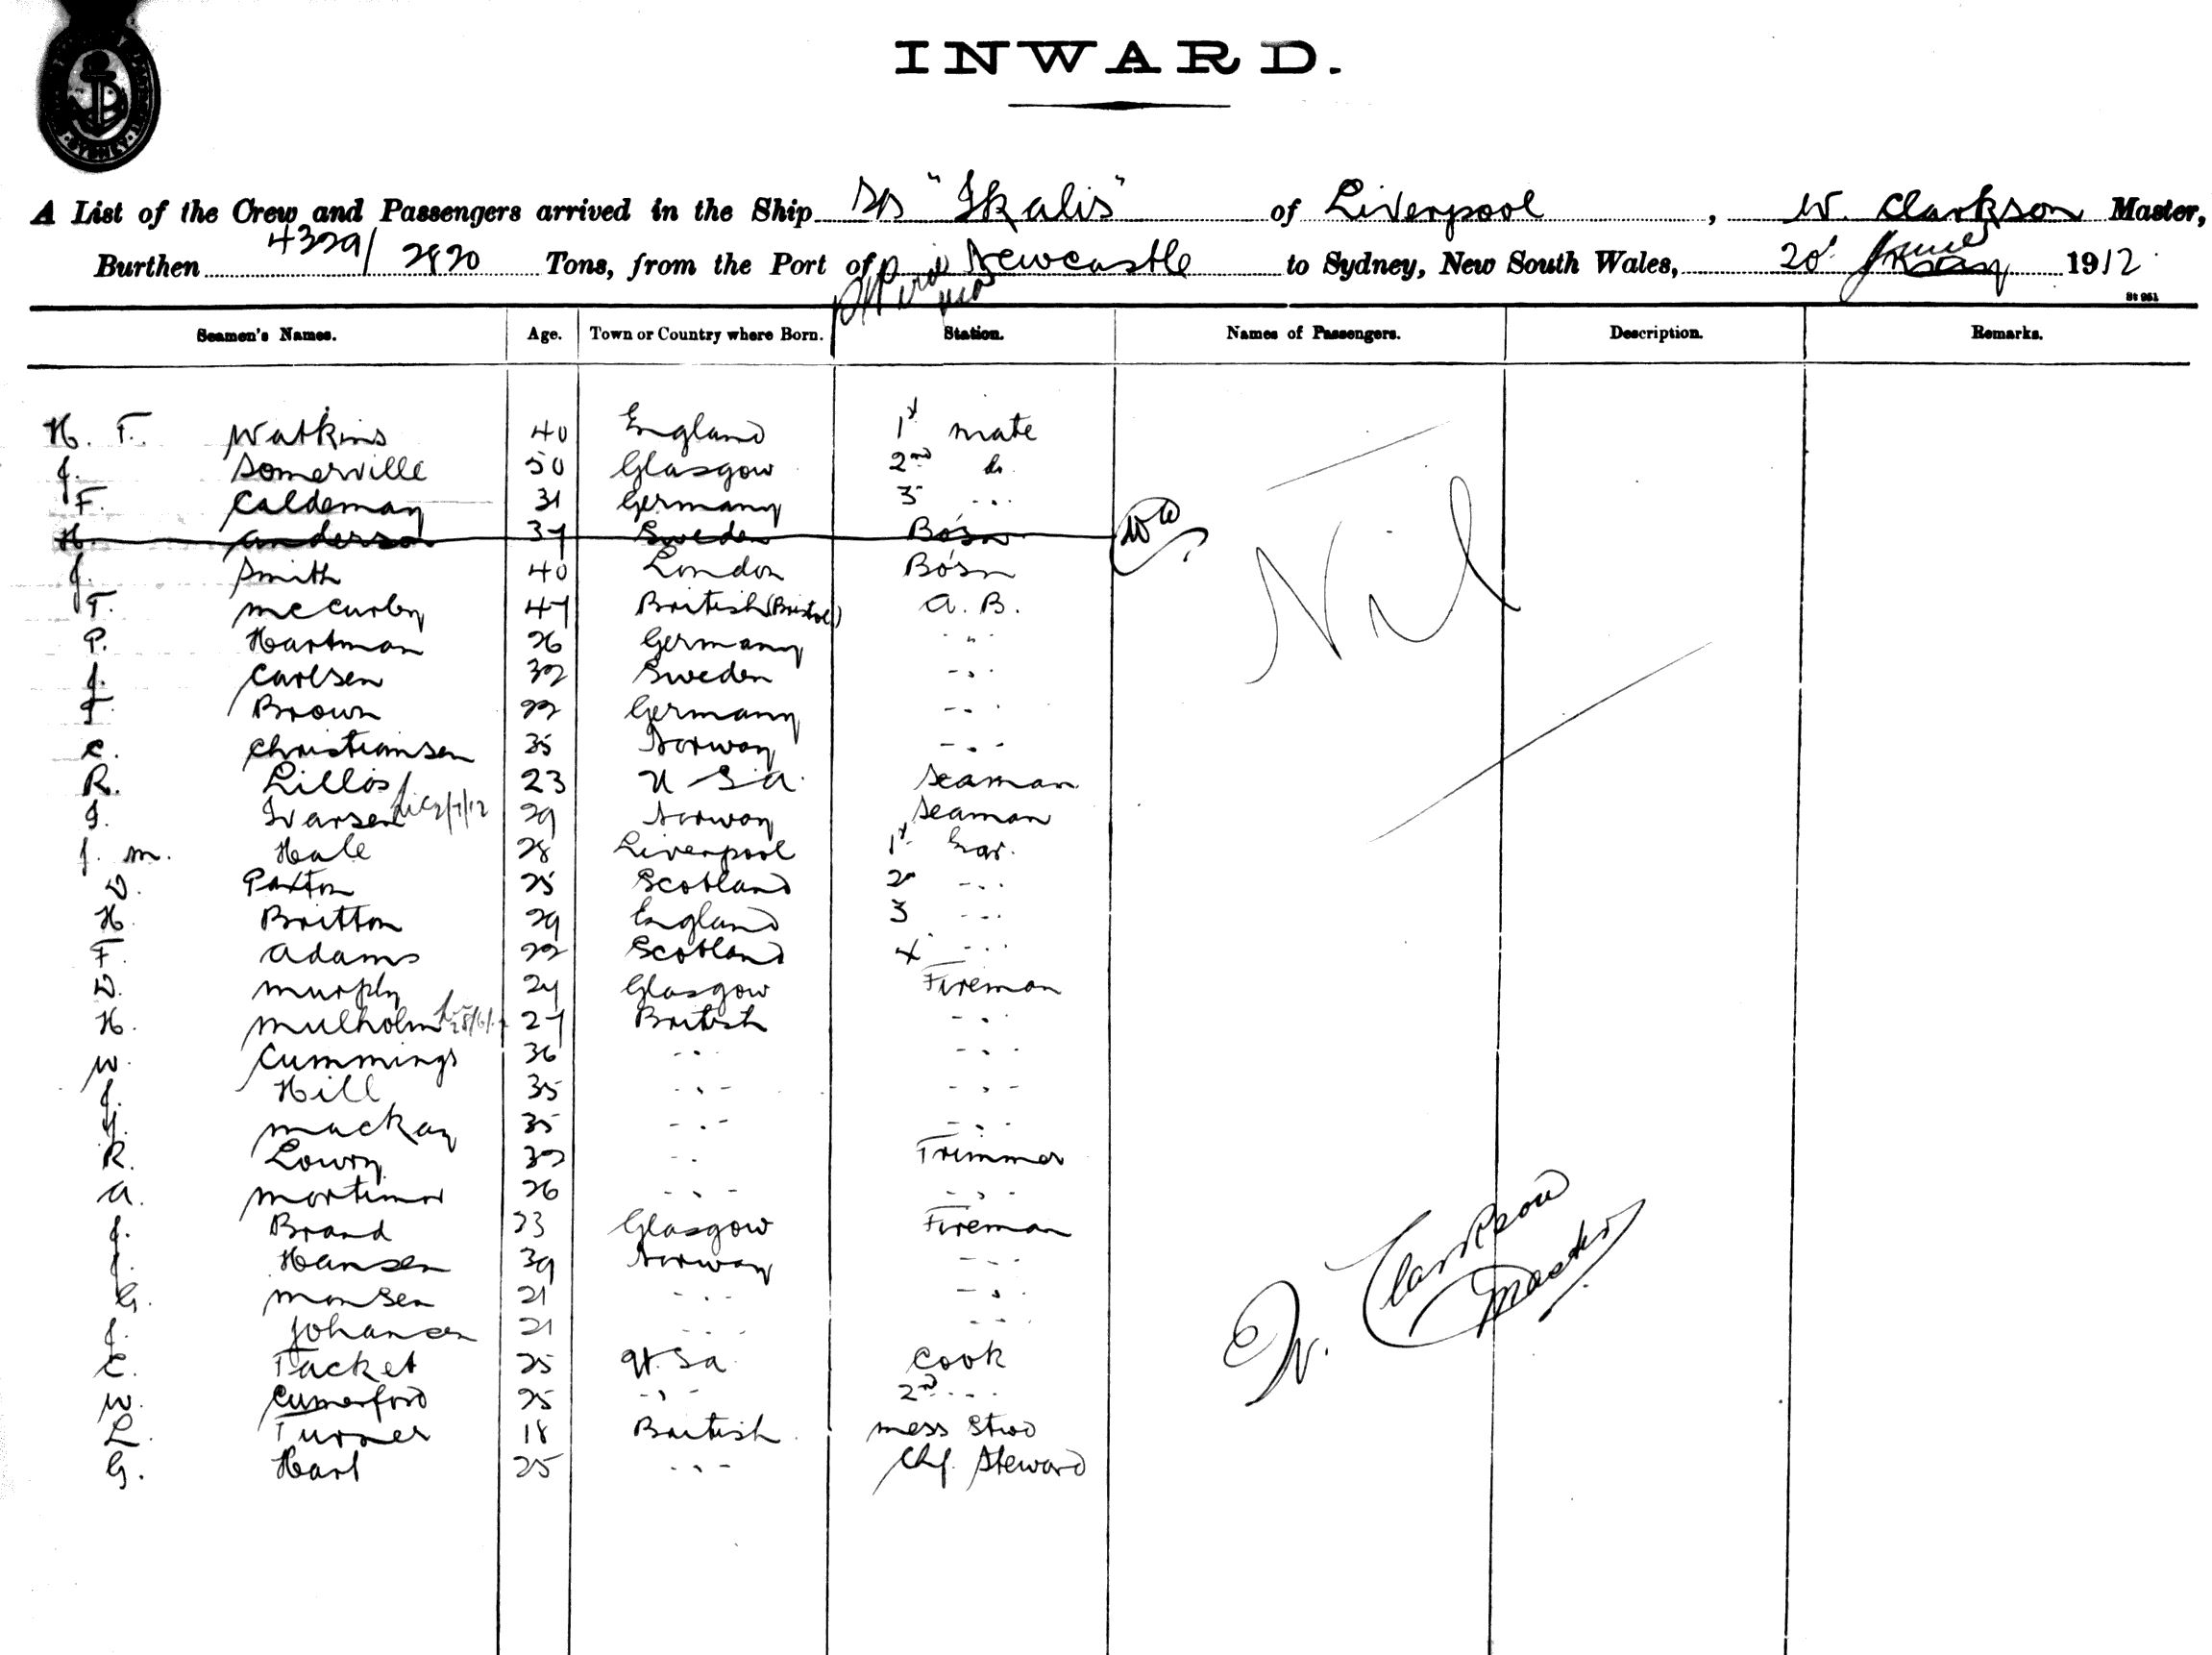 SYDNEY
INWARD.
A List of the Crew and Passengers arrived in the Ship SS "Ikalis" of Liverpool, W. Clarkson Master,
Burthen 4329/2820 Tons, from the Port of Newcastle to Sydney, New South Wales, 20 June 1912.
St 951
Seamen's Names. Age. Town or Country where Born. Station. Names of Passengers. Description. Remarks.
H. F. Watkins 40 England 1st mate
J. Somerville 50 Glasgow 2nd do.
F. Caldeman 31 Germany 3 " 
H. Anderson 37 Sweden Bo'sn
J. Smith 40 London Bo'sn
T. McCurley 47 British (Bristol) A. B.
P. Hartman 26 Germany "
J. Carlsen 32 Sweden "
F. Brown 22 Germany "
C. Christiansen 35 Norway "
R. Lillis 23 U S A. Seaman
I. Ivarsen 29 Norway Seaman
J. M. Hale 28 Liverpool 1st Engr.
D. Paxton 25 Scotland 2nd "
H. Britton 29 England 3 "
F. Adams 22 Scotland 4 "
D. Murphy 24 Glasgow Fireman
H. Mulholm 27 British "
W. Cummings 36 " "
J. Hill 35 " "
Mackay 35 " "
R. Lowry 32 " Trimmer
A. Mortimor 26 " "
J. Brand 23 Glasgow Fireman
J. Hansen 39 Norway "
G. Monsen 21 " "
J. Johansen 21 " "
C. Tacket 25 U. S a Cook
W. Cumerford 25 " 2nd "
L. Turner 18 British mess Stwd
G. Hart 25 " Chf. Steward
Nil
W. Clarkson
Master